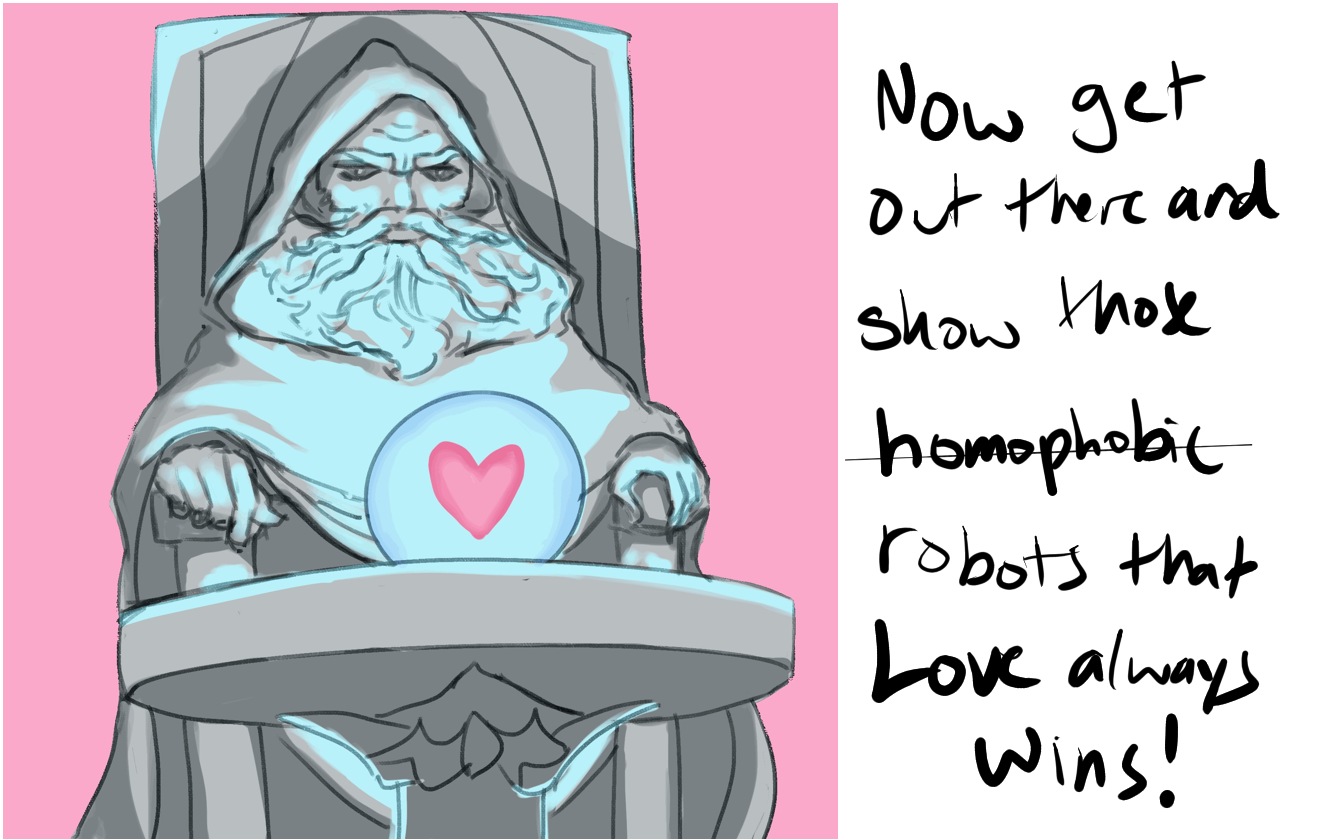 Now get
out there and
show those
homophobic
robots that
Love always
wins!